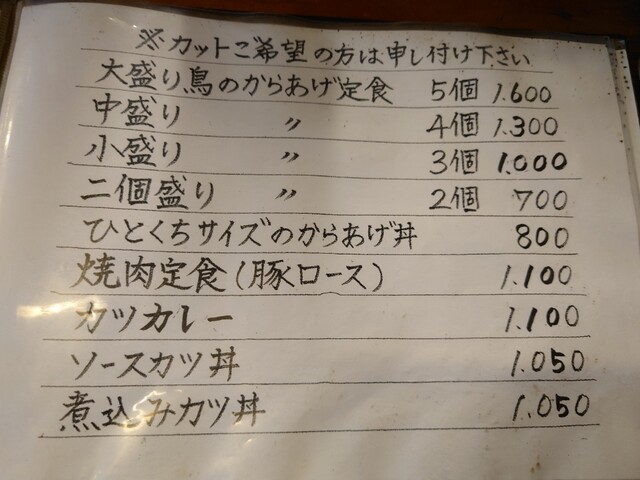 ※カットご希望の方は申し付け下さい
大盛り鳥のからあげ定食 5個 1.600
中盛り 〃 4個 1.300
小盛り 〃 3個 1.000
二個盛り 〃 2個 700
ひとくちサイズのからあげ丼 800
焼肉定食(豚ロース) 1.100
カツカレー 1.100
ソースカツ丼 1.050
煮込みカツ丼 1.050